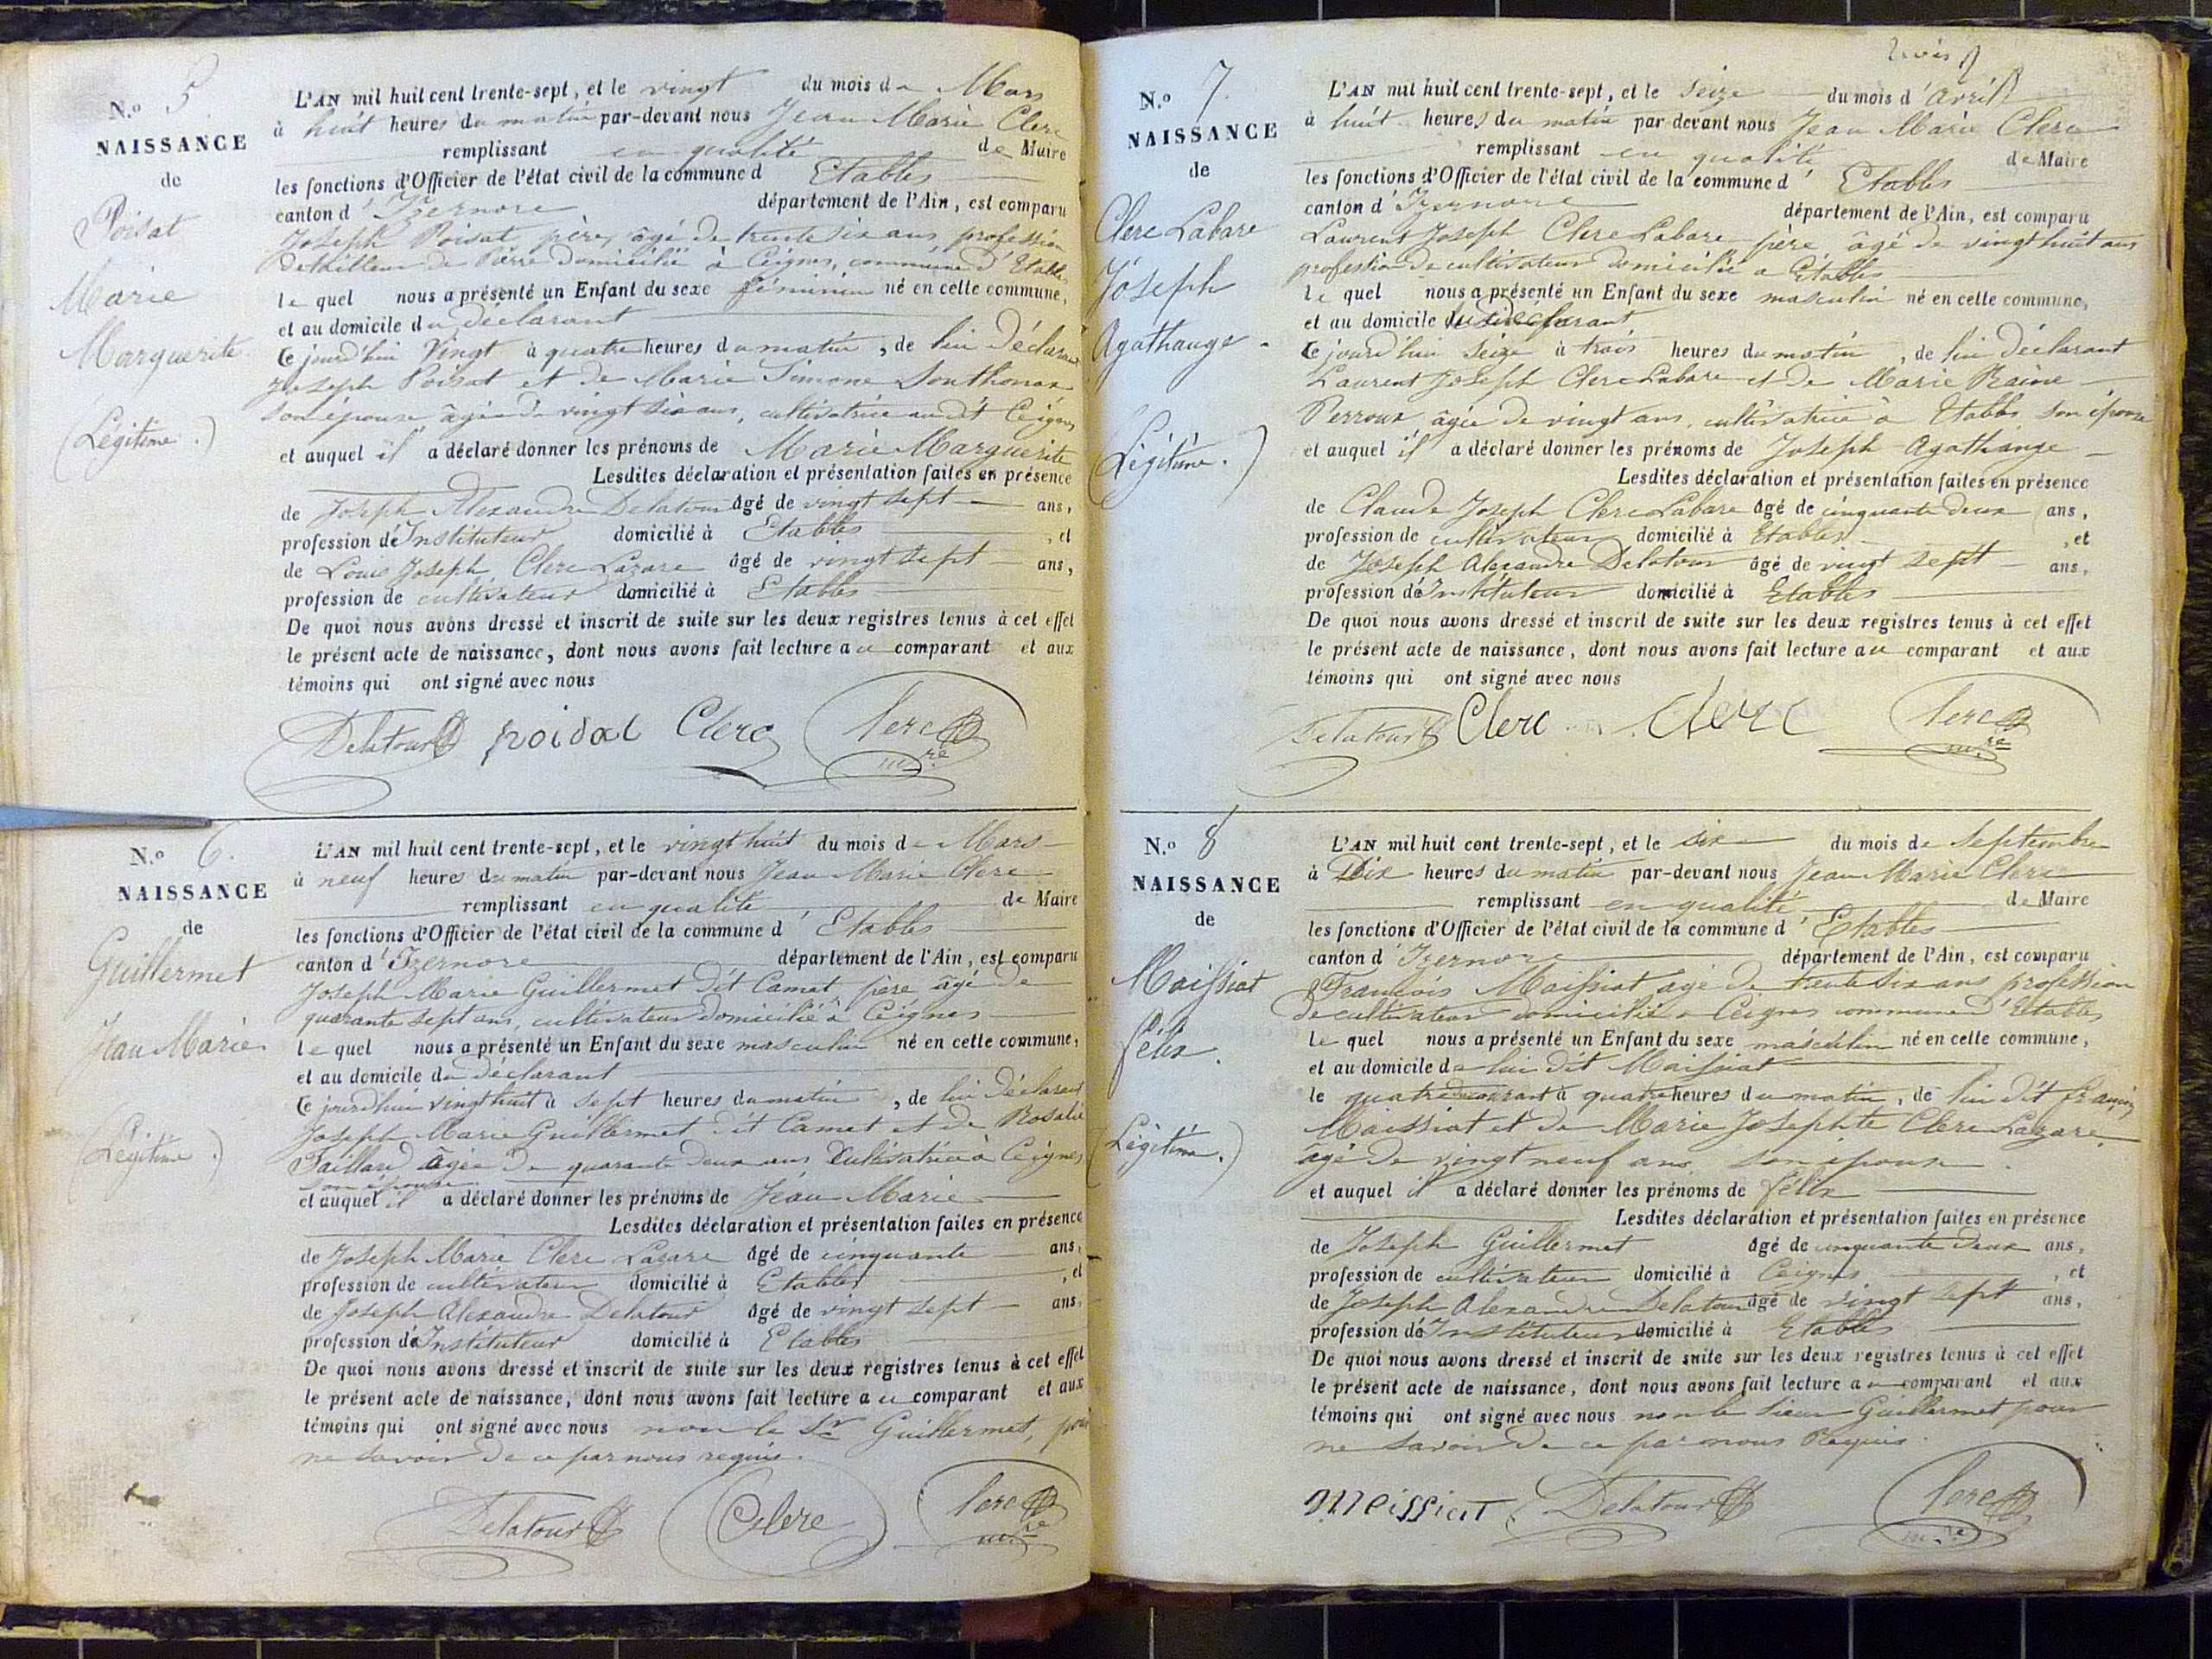 N.o 5
NAISSANCE
de
Poisat
Marie
Marguerite
(Légitime.)
L'AN mil huit cent trente-sept, et le vingt du mois de Mars
à huit heures du matin par-devant nous Jean Marie Clerc
remplissant en qualité de Maire
les fonctions d'Officier de l'état civil de la commune d' Etables
canton d' Izernore département de l'Ain, est comparu
Joseph Poisat père, âgé de trente six ans, profession
de tailleur de Pierre domicilié à Ceignes, commune d'Etables
le quel nous a présenté un Enfant du sexe féminin né en cette commune,
et au domicile du déclarant
Ce jourd'hui Vingt à quatre heures du matin, de lui Déclarant
Joseph Poisat et de Marie Simone Southonax
son épouse âgée de vingt six ans, cultivatrice au dit Ceignes
et auquel il a déclaré donner les prénoms de Marie Marguerite
Lesdites déclaration et présentation faites en présence
de Joseph Alexandre Delatour âgé de vingt sept ans,
profession d'Instituteur domicilié à Etables, et
de Louis Joseph Clerc Lazare âgé de vingt sept ans,
profession de cultivateur domicilié à Etables
De quoi nous avons dressé et inscrit de suite sur les deux registres tenus à cet effet
le présent acte de naissance, dont nous avons fait lecture au comparant et aux
témoins qui ont signé avec nous
Delatour poidat Clerc Clerc
mre
N.o 6.
NAISSANCE
de
Guillermet
Jean Marie
(Légitime.)
L'AN mil huit cent trente-sept, et le vingt huit du mois de Mars
à neuf heures du matin par-devant nous Jean Marie Clerc
remplissant en qualité de Maire
les fonctions d'Officier de l'état civil de la commune d' Etables
canton d' Izernore département de l'Ain, est comparu
Joseph Marie Guillermet dit Camet père âgé de
quarante sept ans, cultivateur domicilié à Ceignes
le quel nous a présenté un Enfant du sexe masculin né en cette commune,
et au domicile du déclarant
Ce jourd'hui vingt huit à sept heures du matin, de lui Déclarant
Joseph Marie Guillermet dit Camet et de Rosalie
Taillard âgée de quarante deux ans Cultivatrice à Ceignes
son épouse
et auquel il a déclaré donner les prénoms de Jean Marie
Lesdites déclaration et présentation faites en présence
de Joseph Marie Clerc Lazare âgé de cinquante ans,
profession de cultivateur domicilié à Etables, et
de Joseph Alexandre Delatour âgé de vingt sept ans,
profession d'Instituteur domicilié à Etables
De quoi nous avons dressé et inscrit de suite sur les deux registres tenus à cet effet
le présent acte de naissance, dont nous avons fait lecture au comparant et aux
témoins qui ont signé avec nous non le Sr Guillermet, pour
ne savoir de ce par nous requis.
Delatour Clerc Clerc
mre
N.o 7.
NAISSANCE
de
Clerc Labare
Joseph
Agathange.
(Légitime.)
L'AN mil huit cent trente-sept, et le Seize du mois d'avril
à huit heures du matin par devant nous Jean Marie Clerc
remplissant en qualité de Maire
les fonctions d'Officier de l'état civil de la commune d' Etables
canton d' Izernore département de l'Ain, est comparu
Laurent Joseph Clerc Labare père âgé de vingt huit ans
profession de cultivateur domicilié à Etables
le quel nous a présenté un Enfant du sexe masculin né en cette commune,
et au domicile du déclarant
Ce jourd'hui Seize à trois heures du matin, de lui Déclarant
Laurent Joseph Clerc Labare et de Marie Reine
Perroux âgée de vingt ans, cultivatrice à Etables son épouse
et auquel il a déclaré donner les prénoms de Joseph Agathange
Lesdites déclaration et présentation faites en présence
de Claude Joseph Clerc Labare âgé de cinquante deux ans,
profession de cultivateur domicilié à Etables, et
de Joseph Alexandre Delatour âgé de vingt sept ans,
profession d'Instituteur domicilié à Etables
De quoi nous avons dressé et inscrit de suite sur les deux registres tenus à cet effet
le présent acte de naissance, dont nous avons fait lecture au comparant et aux
témoins qui ont signé avec nous
Delatour Clerc Clerc Clerc
mre
N.o 8
NAISSANCE
de
Maissiat
félix.
(Légitime.)
L'AN mil huit cent trente-sept, et le six du mois de Septembre
à Dix heures du matin par-devant nous Jean Marie Clerc
remplissant en qualité de Maire
les fonctions d'Officier de l'état civil de la commune d' Etables
canton d' Izernore département de l'Ain, est comparu
François Maissiat âgé de trente six ans profession
de cultivateur domicilié à Ceignes commune d'Etables
le quel nous a présenté un Enfant du sexe masculin né en cette commune,
et au domicile de lui dit Maissiat
le quatre du courant à quatre heures du matin, de lui dit françois
Maissiat et de Marie Josephte Clerc Lazare
âgé de vingt neuf ans, son épouse
et auquel il a déclaré donner les prénoms de félix
Lesdites déclaration et présentation faites en présence
de Joseph Guillermet âgé de cinquante deux ans,
profession de cultivateur domicilié à Ceignes, et
de Joseph Alexandre Delatour âgé de vingt sept ans,
profession d'Instituteur domicilié à Etables
De quoi nous avons dressé et inscrit de suite sur les deux registres tenus à cet effet
le présent acte de naissance, dont nous avons fait lecture au comparant et aux
témoins qui ont signé avec nous non le sieur Guillermet pour
ne savoir de ce par nous Requis.
Meissiat Delatour Clerc
mre